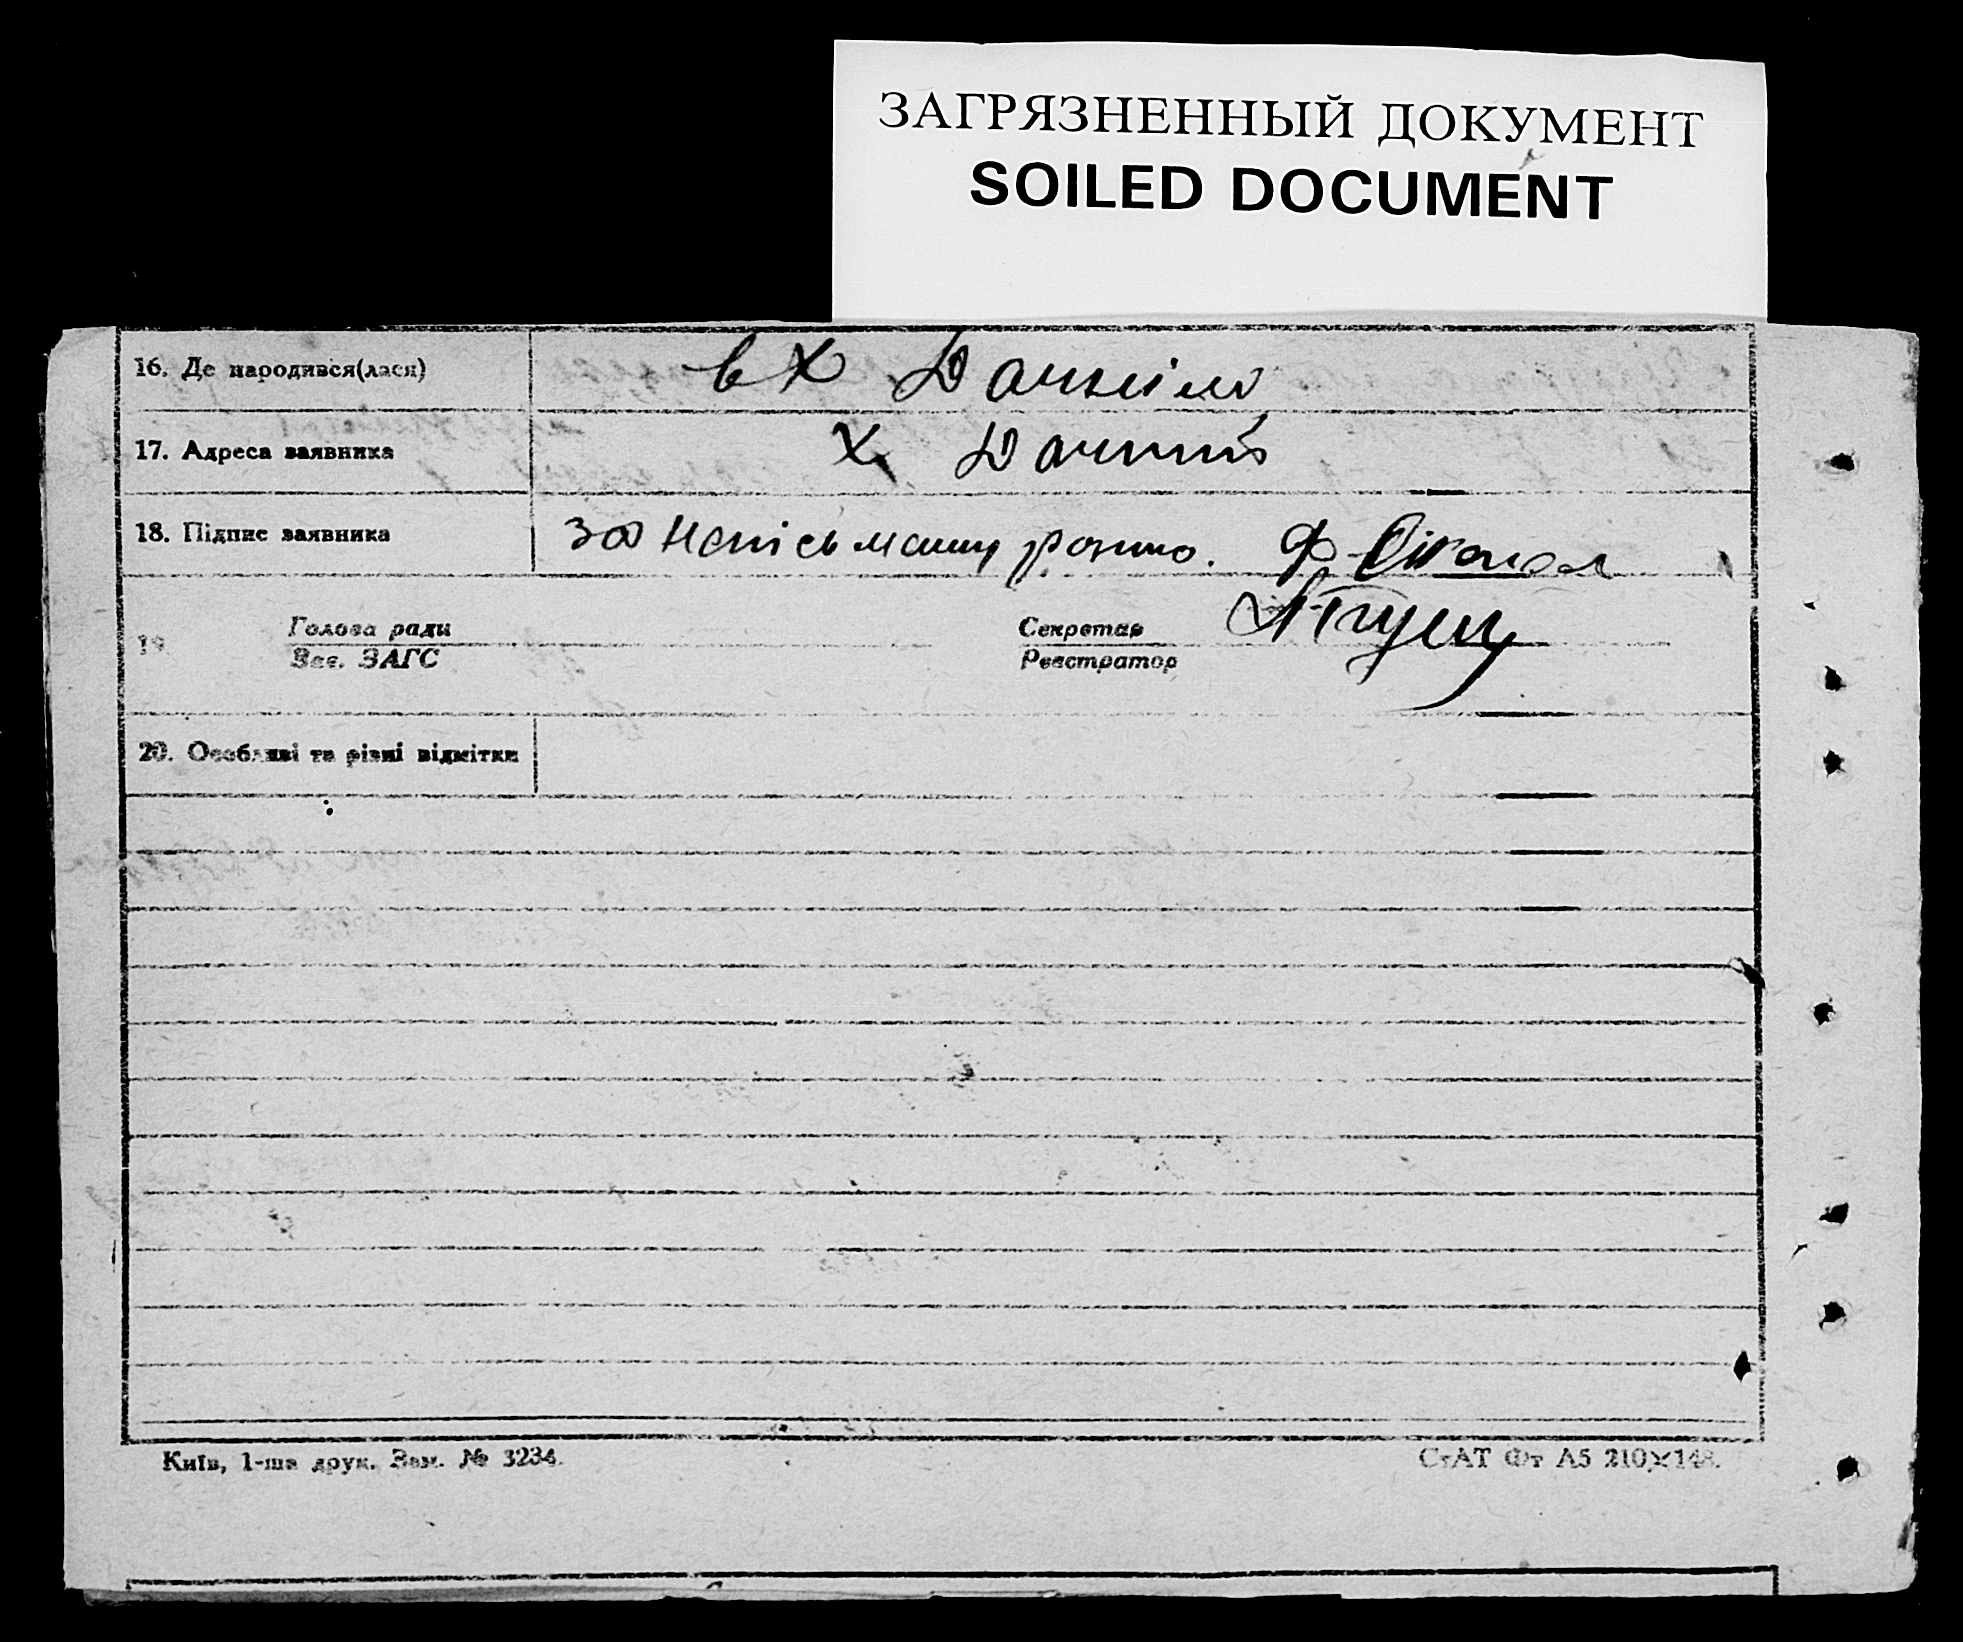 ЗАГРЯЗНЕННЫЙ ДОКУМЕНТ
SOILED DOCUMENT
16. Де народився(лася) в Х
17. Адреса заявника Х.
18. Підпис заявника за
19. Голова ради Секретар
Зав. ЗАГС Реєстратор
20. Особливі та різні відмітки
Київ, 1-ша друк. Зам. № 3234.
СтАТ Фт А5 210×148.